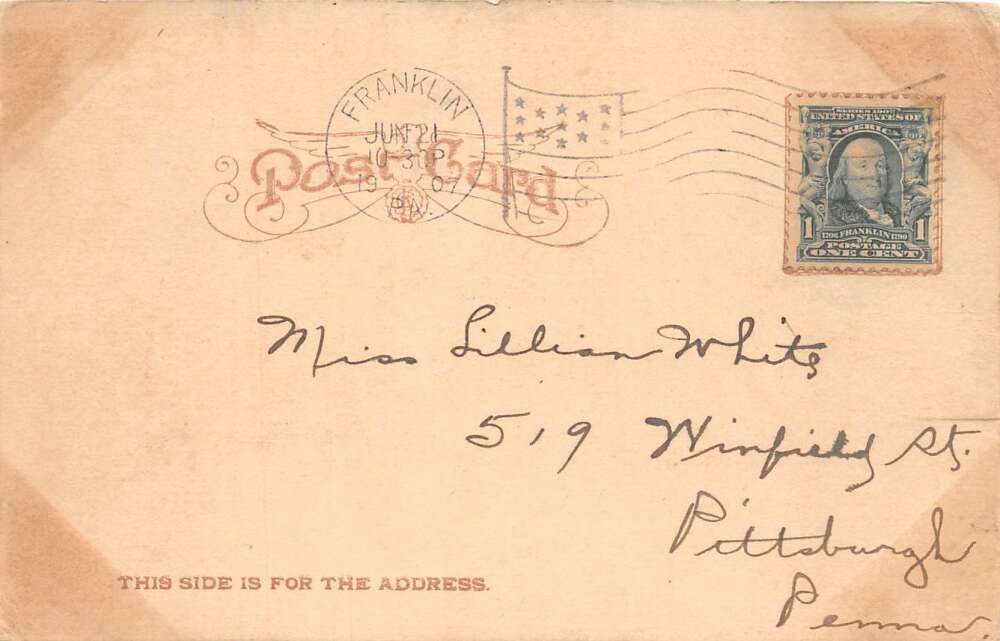 FRANKLIN
JUN 21
10-30P
1907
PA.
Post Card
SERIES 1902
UNITED STATES OF
AMERICA
1 1706 FRANKLIN 1790 1
POSTAGE
ONE CENT
Miss Lillian White
519 Winfield St.
Pittsburgh
Penna
THIS SIDE IS FOR THE ADDRESS.